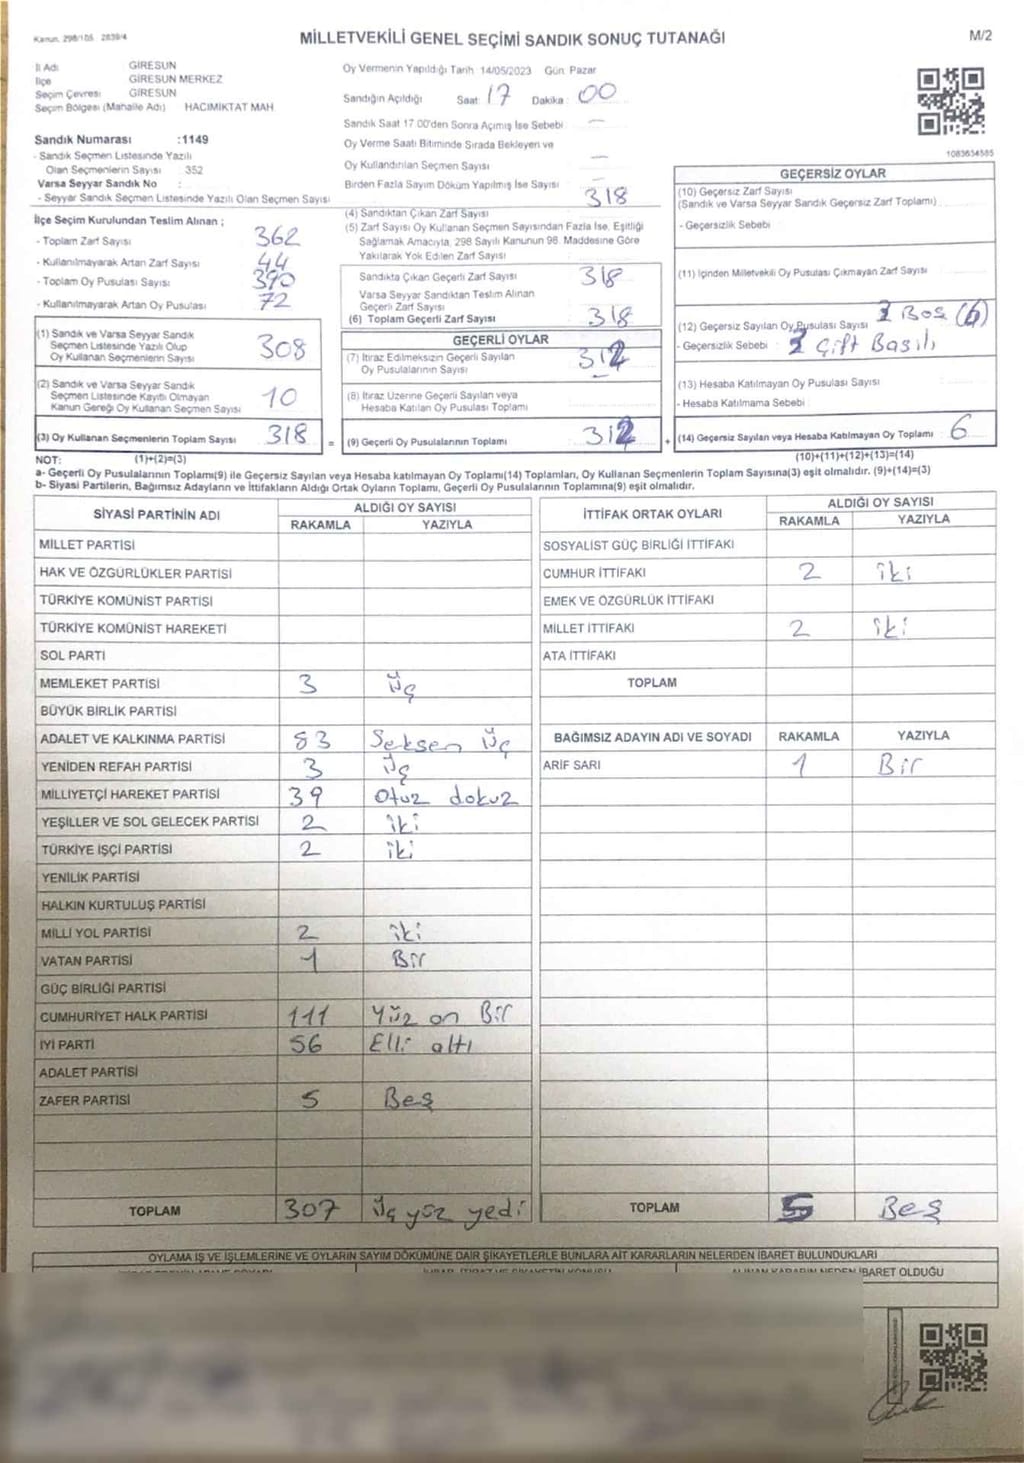 Kanun. 298/105 2839/4
MİLLETVEKİLİ GENEL SEÇİMİ SANDIK SONUÇ TUTANAĞI
M/2
İl Adı GİRESUN
İlçe GİRESUN MERKEZ
Seçim Çevresi GİRESUN
Seçim Bölgesi (Mahalle Adı) HACIMİKTAT MAH
Sandık Numarası :1149
- Sandık Seçmen Listesinde Yazılı
Olan Seçmenlerin Sayısı 352
Varsa Seyyar Sandık No :
- Seyyar Sandık Seçmen Listesinde Yazılı Olan Seçmen Sayısı
İlçe Seçim Kurulundan Teslim Alınan ;
- Toplam Zarf Sayısı 362
- Kullanılmayarak Artan Zarf Sayısı 44
- Toplam Oy Pusulası Sayısı 390
- Kullanılmayarak Artan Oy Pusulası 72
(1) Sandık ve Varsa Seyyar Sandık
Seçmen Listesinde Yazılı Olup
Oy Kullanan Seçmenlerin Sayısı 308
(2) Sandık ve Varsa Seyyar Sandık
Seçmen Listesinde Kayıtlı Olmayan
Kanun Gereği Oy Kullanan Seçmen Sayısı 10
(3) Oy Kullanan Seçmenlerin Toplam Sayısı 318 =
Oy Vermenin Yapıldığı Tarih 14/05/2023 Gün Pazar
Sandığın Açıldığı Saat: 17 Dakika : 00
Sandık Saat 17.00'den Sonra Açımış İse Sebebi —
Oy Verme Saati Bitiminde Sırada Bekleyen ve
Oy Kullandırılan Seçmen Sayısı —
Birden Fazla Sayım Döküm Yapılmış İse Sayısı
(4) Sandıktan Çıkan Zarf Sayısı 318
(5) Zarf Sayısı Oy Kullanan Seçmen Sayısından Fazla İse, Eşitliği
Sağlamak Amacıyla, 298 Sayılı Kanunun 98. Maddesine Göre
Yakılarak Yok Edilen Zarf Sayısı
Sandıkta Çıkan Geçerli Zarf Sayısı 318
Varsa Seyyar Sandıktan Teslim Alınan
Geçerli Zarf Sayısı
(6) Toplam Geçerli Zarf Sayısı 318
GEÇERLİ OYLAR
(7) İtiraz Edilmeksizin Geçerli Sayılan
Oy Pusulalarının Sayısı 312
(8) İtiraz Üzerine Geçerli Sayılan veya
Hesaba Katılan Oy Pusulası Toplamı
(9) Geçerli Oy Pusulalarının Toplamı 312 +
1083634585
GEÇERSİZ OYLAR
(10) Geçersiz Zarf Sayısı
(Sandık ve Varsa Seyyar Sandık Geçersiz Zarf Toplamı)
- Geçersizlik Sebebi
(11) İçinden Milletvekili Oy Pusulası Çıkmayan Zarf Sayısı
(12) Geçersiz Sayılan Oy Pusulası Sayısı Boş (6)
- Geçersizlik Sebebi Çift Basılı
(13) Hesaba Katılmayan Oy Pusulası Sayısı
- Hesaba Katılmama Sebebi
(14) Geçersiz Sayılan veya Hesaba Katılmayan Oy Toplamı 6
NOT: (1)+(2)=(3) (10)+(11)+(12)+(13)=(14)
a- Geçerli Oy Pusulalarının Toplamı(9) ile Geçersiz Sayılan veya Hesaba katılmayan Oy Toplamı(14) Toplamları, Oy Kullanan Seçmenlerin Toplam Sayısına(3) eşit olmalıdır. (9)+(14)=(3)
b- Siyasi Partilerin, Bağımsız Adayların ve İttifakların Aldığı Ortak Oyların Toplamı, Geçerli Oy Pusulalarının Toplamına(9) eşit olmalıdır.
SİYASİ PARTİNİN ADI ALDIĞI OY SAYISI
RAKAMLA YAZIYLA
MİLLET PARTİSİ
HAK VE ÖZGÜRLÜKLER PARTİSİ
TÜRKİYE KOMÜNİST PARTİSİ
TÜRKİYE KOMÜNİST HAREKETİ
SOL PARTİ
MEMLEKET PARTİSİ 3 Üç
BÜYÜK BİRLİK PARTİSİ
ADALET VE KALKINMA PARTİSİ 83 Seksen Üç
YENİDEN REFAH PARTİSİ 3 Üç
MİLLİYETÇİ HAREKET PARTİSİ 39 Otuz dokuz
YEŞİLLER VE SOL GELECEK PARTİSİ 2 iki
TÜRKİYE İŞÇİ PARTİSİ 2 iki
YENİLİK PARTİSİ
HALKIN KURTULUŞ PARTİSİ
MİLLİ YOL PARTİSİ 2 iki
VATAN PARTİSİ 1 Bir
GÜÇ BİRLİĞİ PARTİSİ
CUMHURİYET HALK PARTİSİ 111 Yüz on Bir
İYİ PARTİ 56 Elli altı
ADALET PARTİSİ
ZAFER PARTİSİ 5 Beş
TOPLAM 307 Üç yüz yedi
İTTİFAK ORTAK OYLARI ALDIĞI OY SAYISI
RAKAMLA YAZIYLA
SOSYALİST GÜÇ BİRLİĞİ İTTİFAKI
CUMHUR İTTİFAKI 2 iki
EMEK VE ÖZGÜRLÜK İTTİFAKI
MİLLET İTTİFAKI 2 iki
ATA İTTİFAKI
TOPLAM
BAĞIMSIZ ADAYIN ADI VE SOYADI RAKAMLA YAZIYLA
ARİF SARI 1 Bir
TOPLAM 5 Beş
OYLAMA İŞ VE İŞLEMLERİNE VE OYLARIN SAYIM DÖKÜMÜNE DAİR ŞİKAYETLERLE BUNLARA AİT KARARLARIN NELERDEN İBARET BULUNDUKLARI
ALINAN KARARIN NEDEN İBARET OLDUĞU